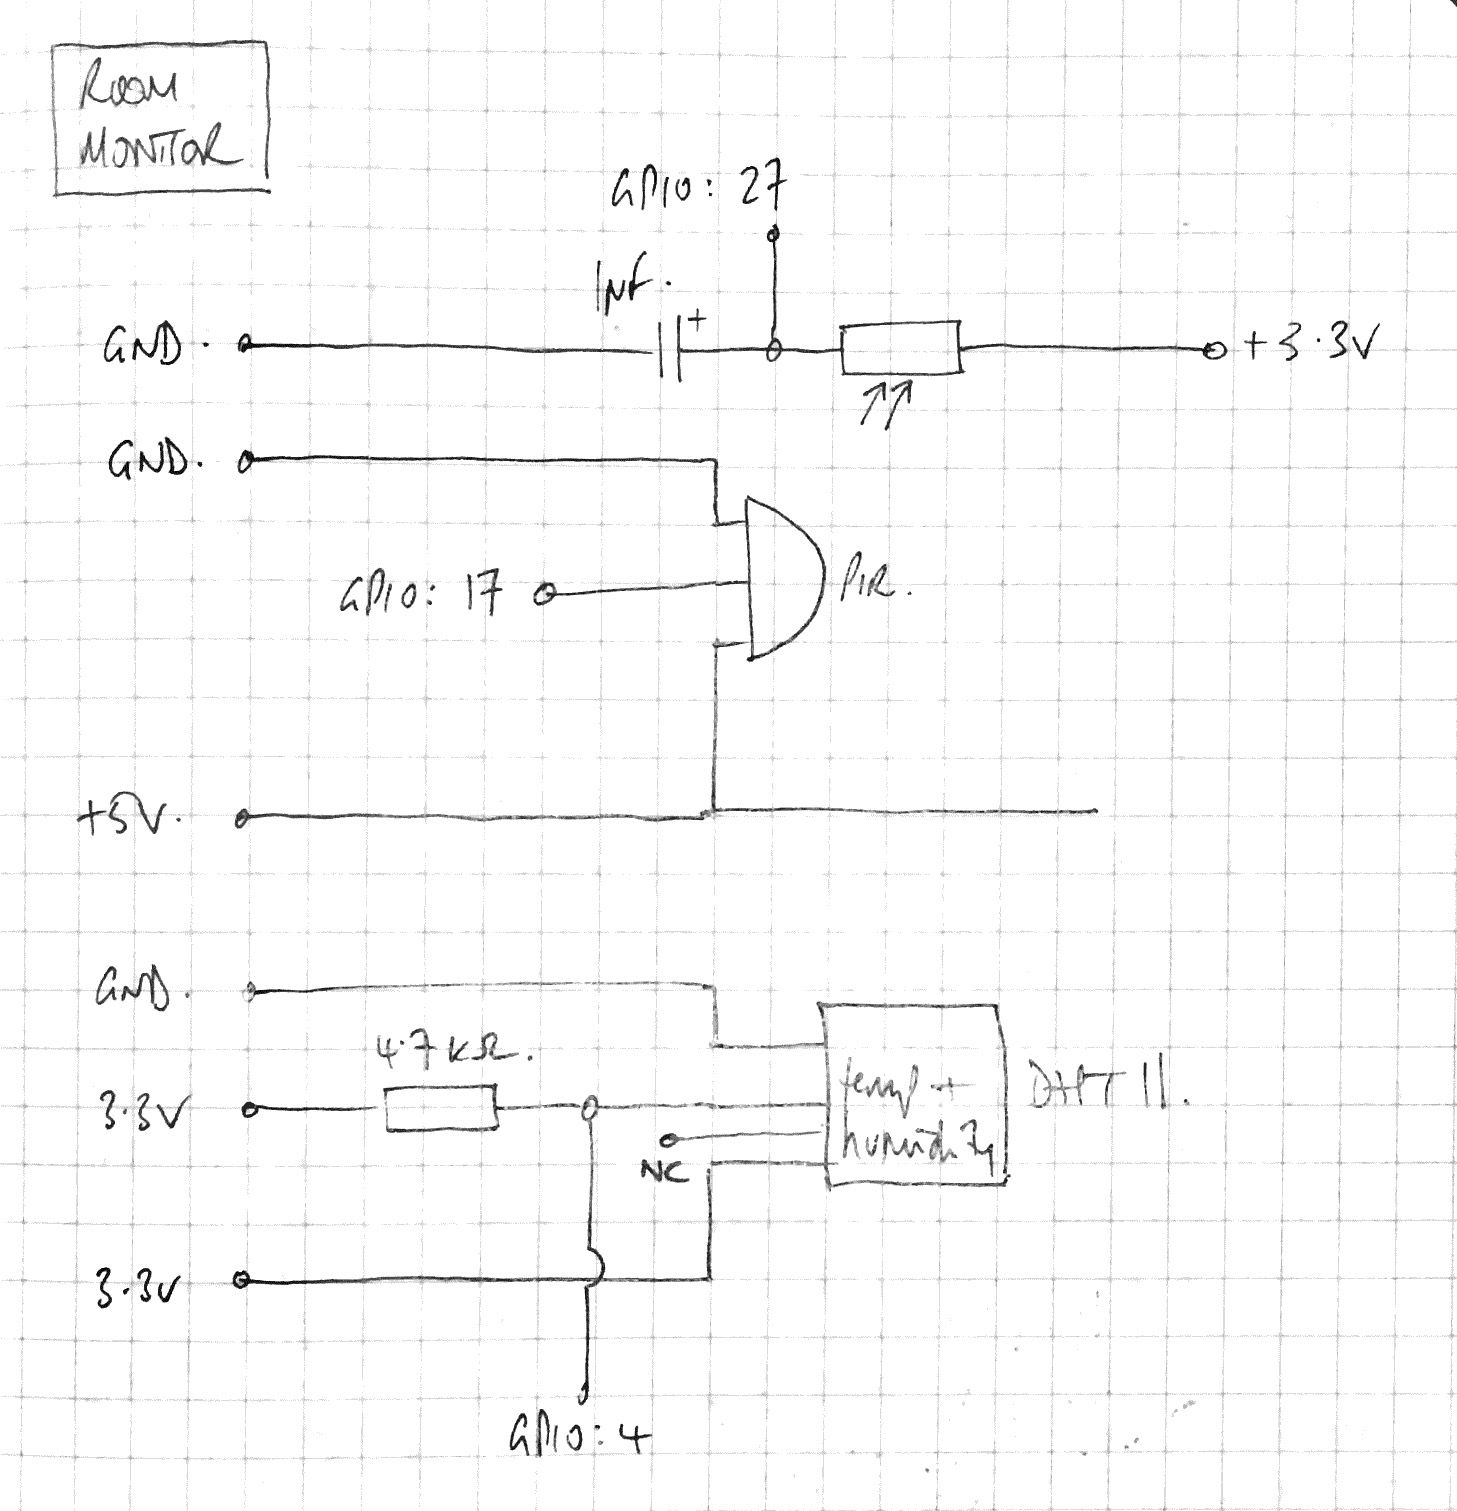 ROOM
MONITOR
GPIO: 27
1μF.
GND.
+
+3.3V
GND.
GPIO: 17
PIR.
+5V.
GND.
4.7 kΩ.
3.3V
temp +
humidity
DHT 11.
NC
3.3V
GPIO: 4